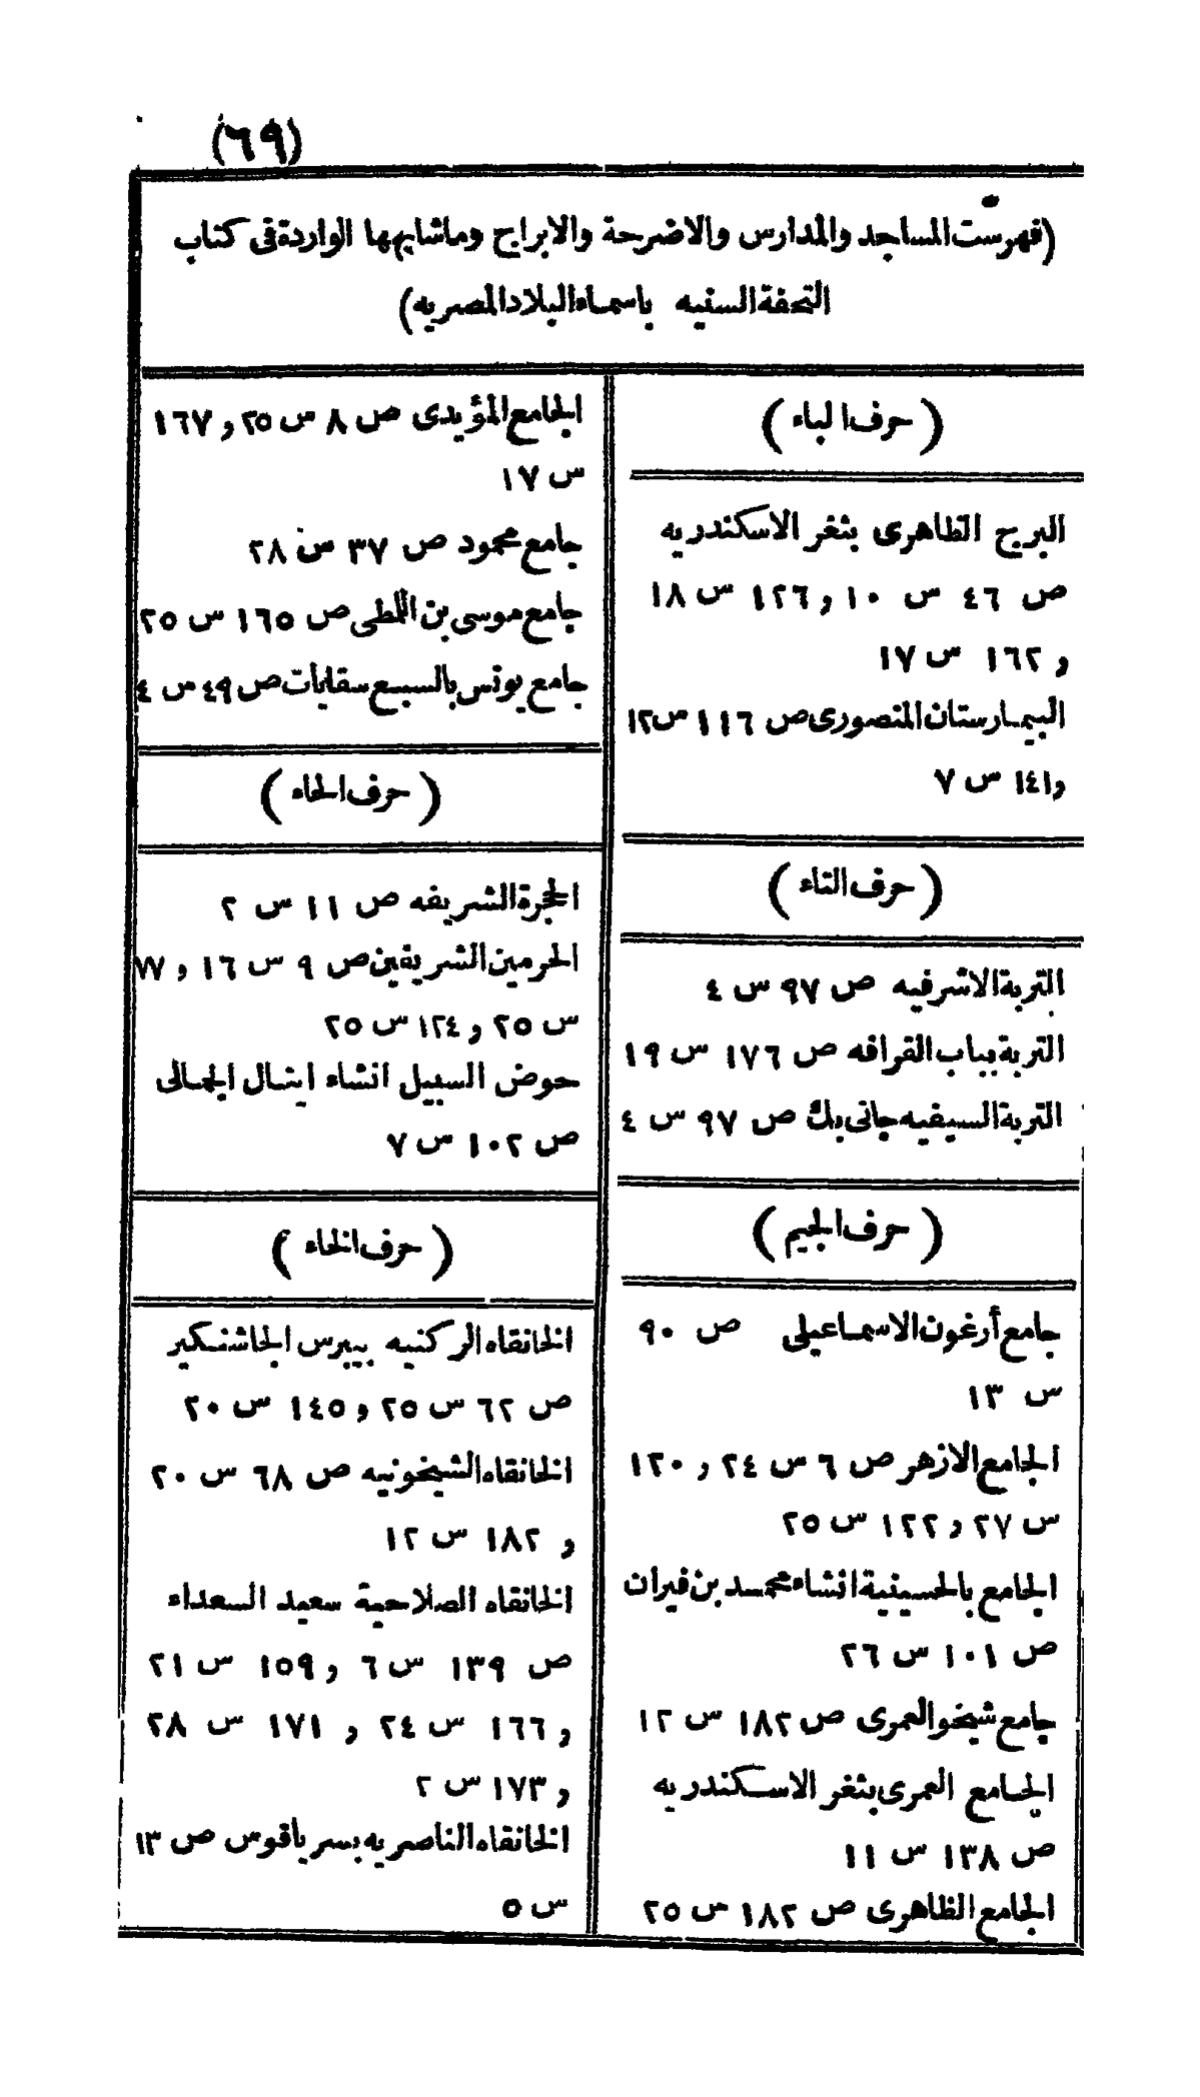 (٦٩)
(فهرست المساجد والمدارس والاضرحة والابراج وماشابهها الواردة فى كتاب
التحفة السنيه باسماء البلاد المصريه)
(حرف الباء)
البرج الظاهرى بثغر الاسكندريه
ص ٤٦ س ١٠ و ١٢٦ س ١٨
و ١٦٢ س ١٧
البيمارستان المنصورى ص ١١٦ س ١٢
و ١٤١ س ٧
(حرف التاء)
التربة الاشرفيه ص ٩٧ س ٤
التربة بباب القرافه ص ١٧٦ س ١٩
التربة السيفيه جانى بك ص ٩٧ س ٤
(حرف الجيم)
جامع أرغون الاسماعيلى ص ٩٠
س ١٣
الجامع الازهر ص ٦ س ٢٤ و ١٢٠
س ٢٧ و ١٢٢ س ٢٥
الجامع بالحسينية انشاء محمد بن فيران
ص ١٠١ س ٢٦
جامع شيخو العمرى ص ١٨٢ س ١٢
الجامع العمرى بثغر الاسكندريه
ص ١٣٨ س ١١
الجامع الظاهرى ص ١٨٢ س ٢٥
الجامع المؤيدى ص ٨ س ٢٥ و ١٦٧
س ١٧
جامع محمود ص ٣٧ س ٢٨
جامع موسى بن الملطى ص ١٦٥ س ٢٥
جامع يونس بالسبع سقايات ص ٤٩ س ٤
(حرف الحاء)
الحجرة الشريفه ص ١١ س ٢
الحرمين الشريفين ص ٩ س ١٦ و ٧٧
س ٢٥ و ١٢٤ س ٢٥
حوض السبيل انشاء اينال الجمالى
ص ١٠٢ س ٧
(حرف الخاء)
الخانقاه الركنيه بيبرس الجاشنكير
ص ٦٢ س ٢٥ و ١٤٥ س ٢٠
الخانقاه الشيخونيه ص ٦٨ س ٢٠
و ١٨٢ س ١٢
الخانقاه الصلاحية سعيد السعداء
ص ١٣٩ س ٦ و ١٥٩ س ٢١
و ١٦٦ س ٢٤ و ١٧١ س ٢٨
و ١٧٣ س ٢
الخانقاه الناصريه بسرياقوس ص ١٣
س ٥